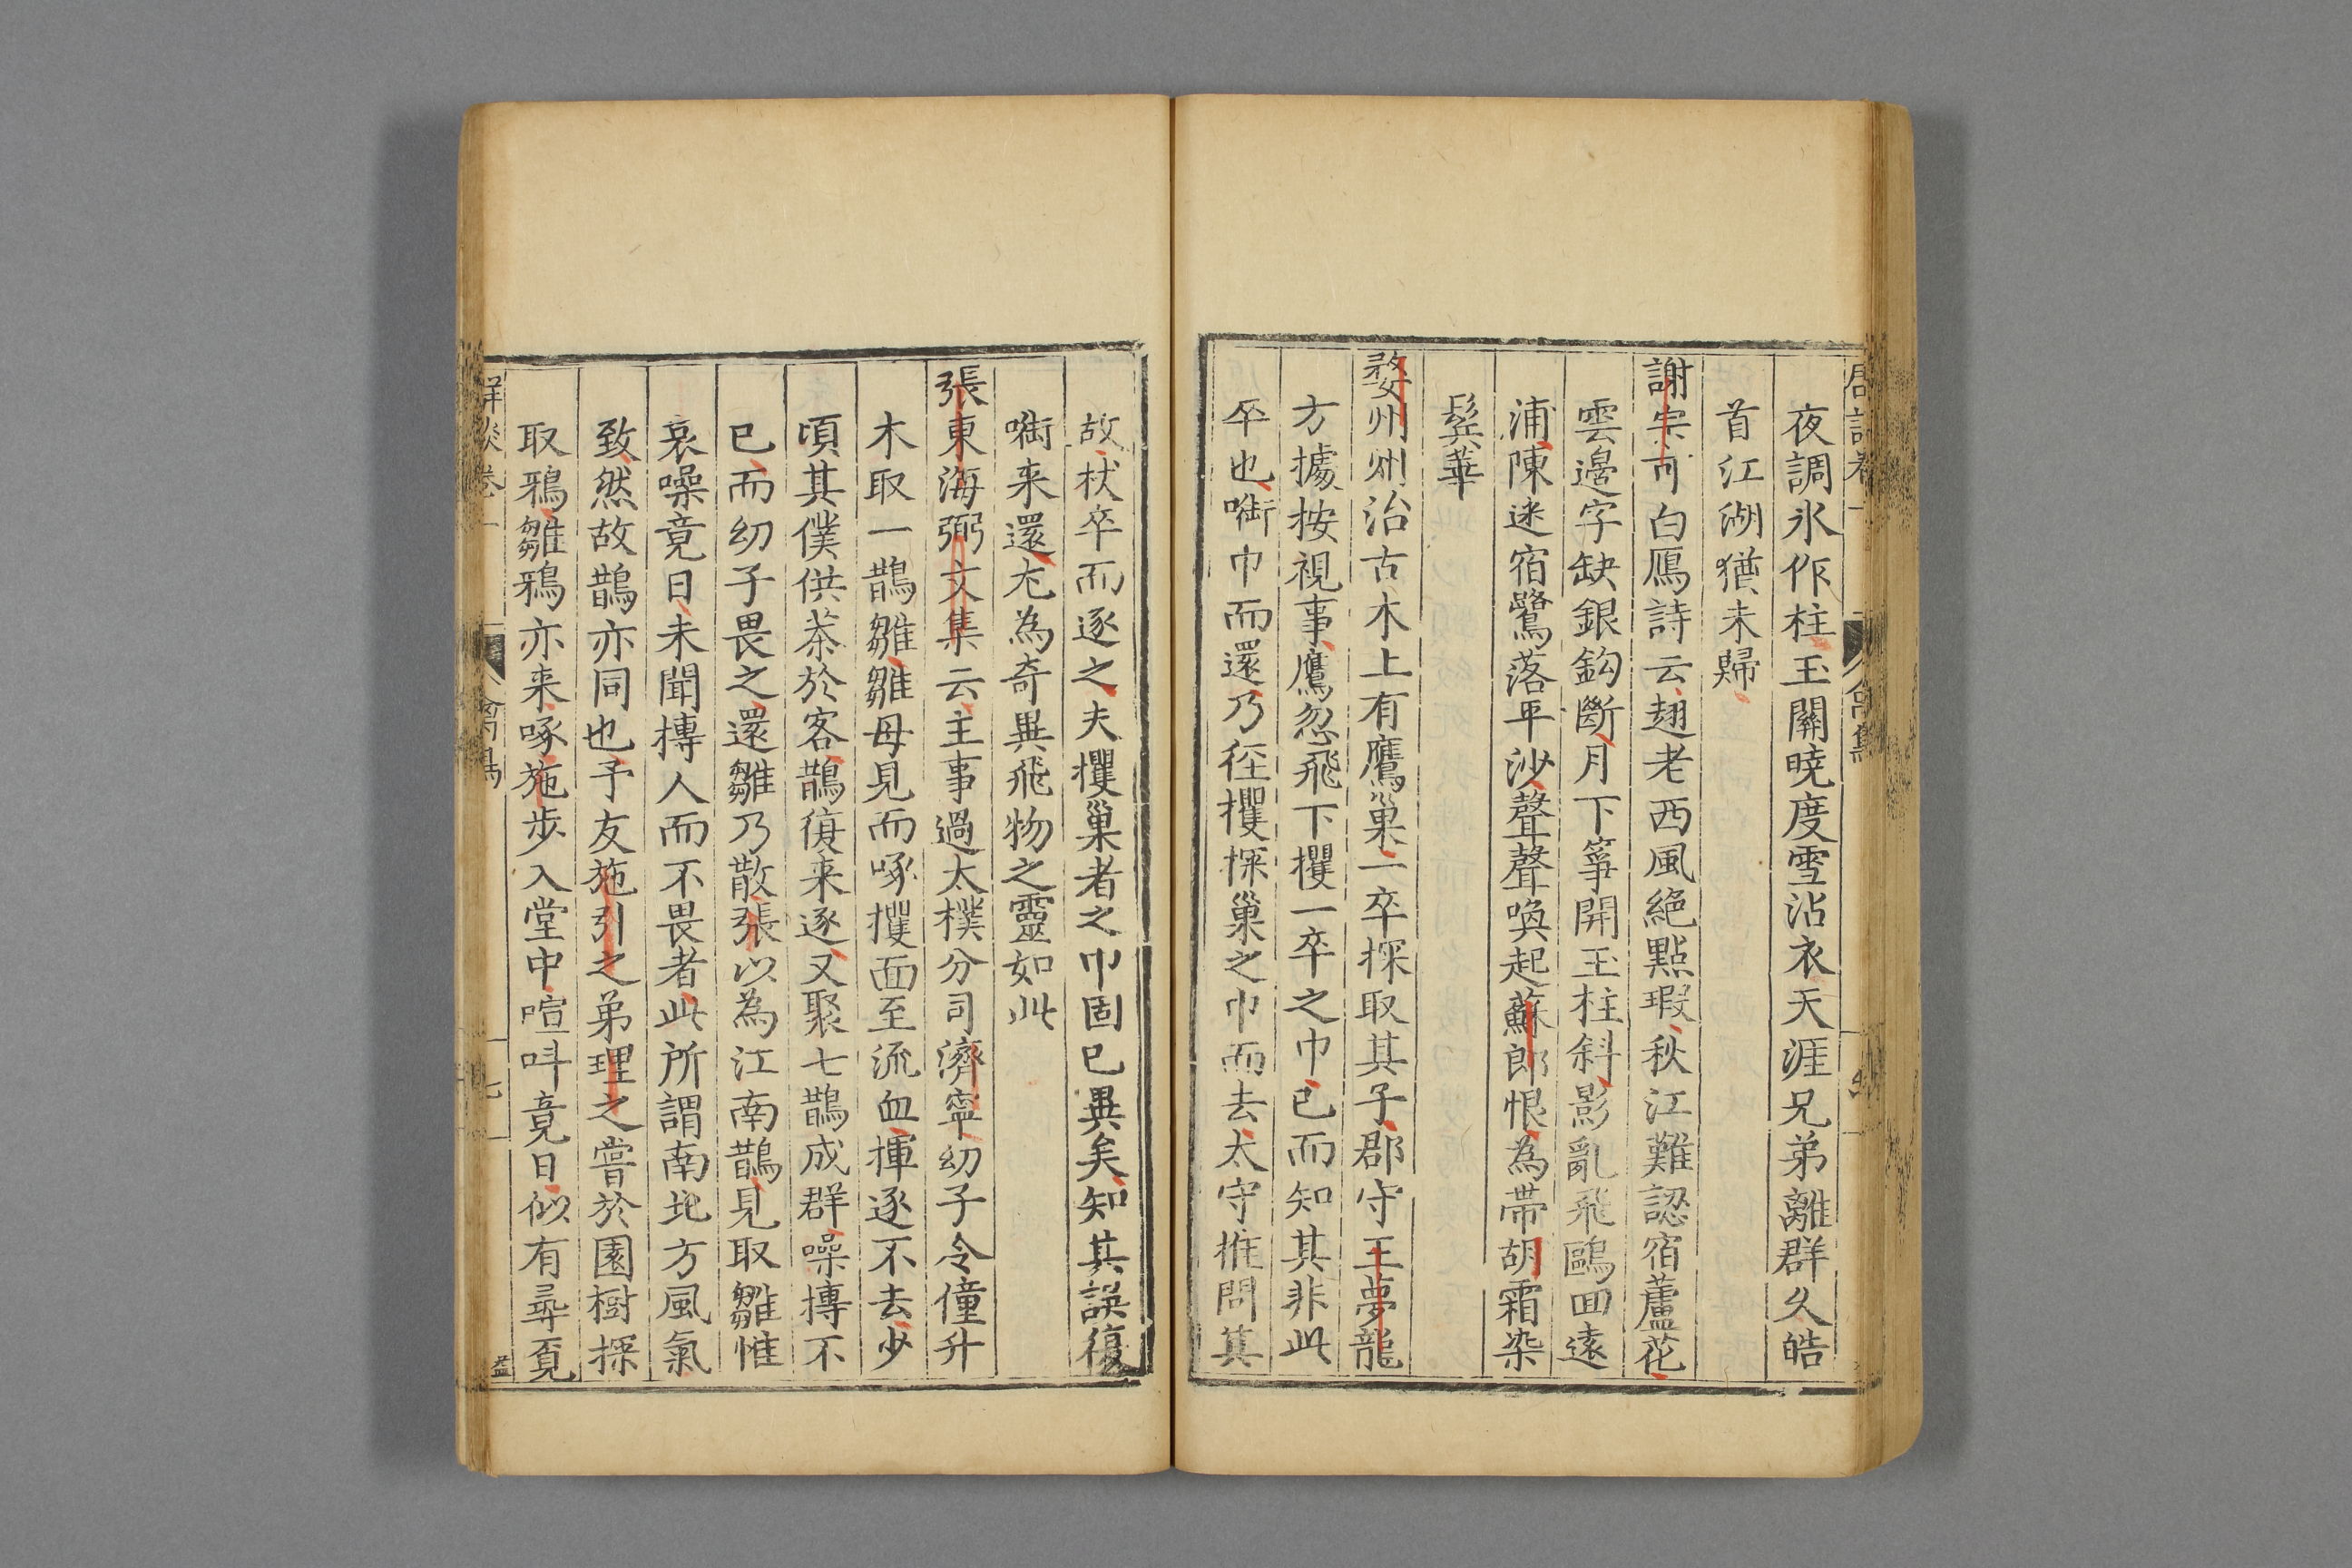 夜調氷作柱玉關曉度雪沾衣天涯兄弟離群久皓
首江湖猶未歸
謝宗可白鴈詩云翅老西風絕點瑕秋江難認宿蘆花
雲邊字缺銀鈎斷月下箏開玉柱斜影亂飛鷗回遠
浦陳迷宿鷺落平沙聲聲喚起蘇郎恨為帶胡霜染
鬂華
婺州州治古木上有鷹巢一卒探取其子郡守王夢龍
方據按視事鷹忽飛下攫一卒之巾已而知其非此
卒也啣巾而還乃徑攫探巢之巾而去太守推問其
故杖卒而逐之夫攫巢者之巾固已異矣知其誤復
啣来還尤為奇異飛物之靈如此
張東海弼文集云主事過太樸分司濟寧幼子令僮升
木取一鵲雛雛母見而啄攫面至流血揮逐不去少
頃其僕供茶於客鵲復来逐又聚七鵲成群噪摶不
已而幼子畏之還雛乃散張以為江南鵲見取雛惟
哀噪竟日未聞摶人而不畏者此所謂南北方風氣
致然故鵲亦同也予友施引之弟理之嘗於園樹探
取鴉雛鴉亦来啄施步入堂中喧呌竟日似有尋覓
禽鳥
七